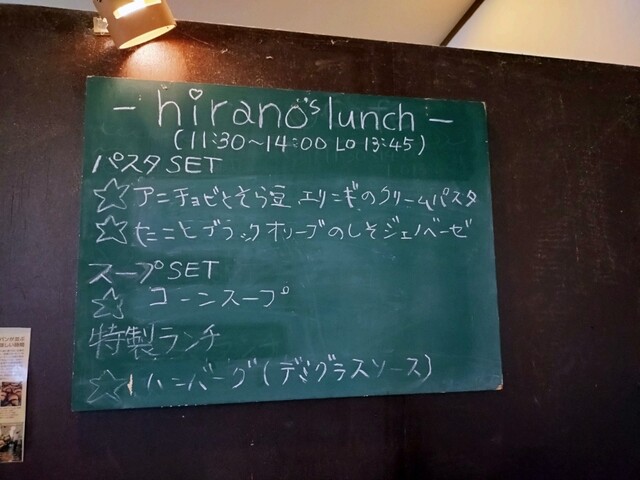 - hirano's lunch -
(11:30~14:00 Lo 13:45)
パスタSET
☆アンチョビとそら豆 エリンギのクリームパスタ
☆たことブラックオリーブのしそジェノベーゼ
スープSET
☆ コーンスープ
特製ランチ
☆ ハンバーグ(デミグラスソース)